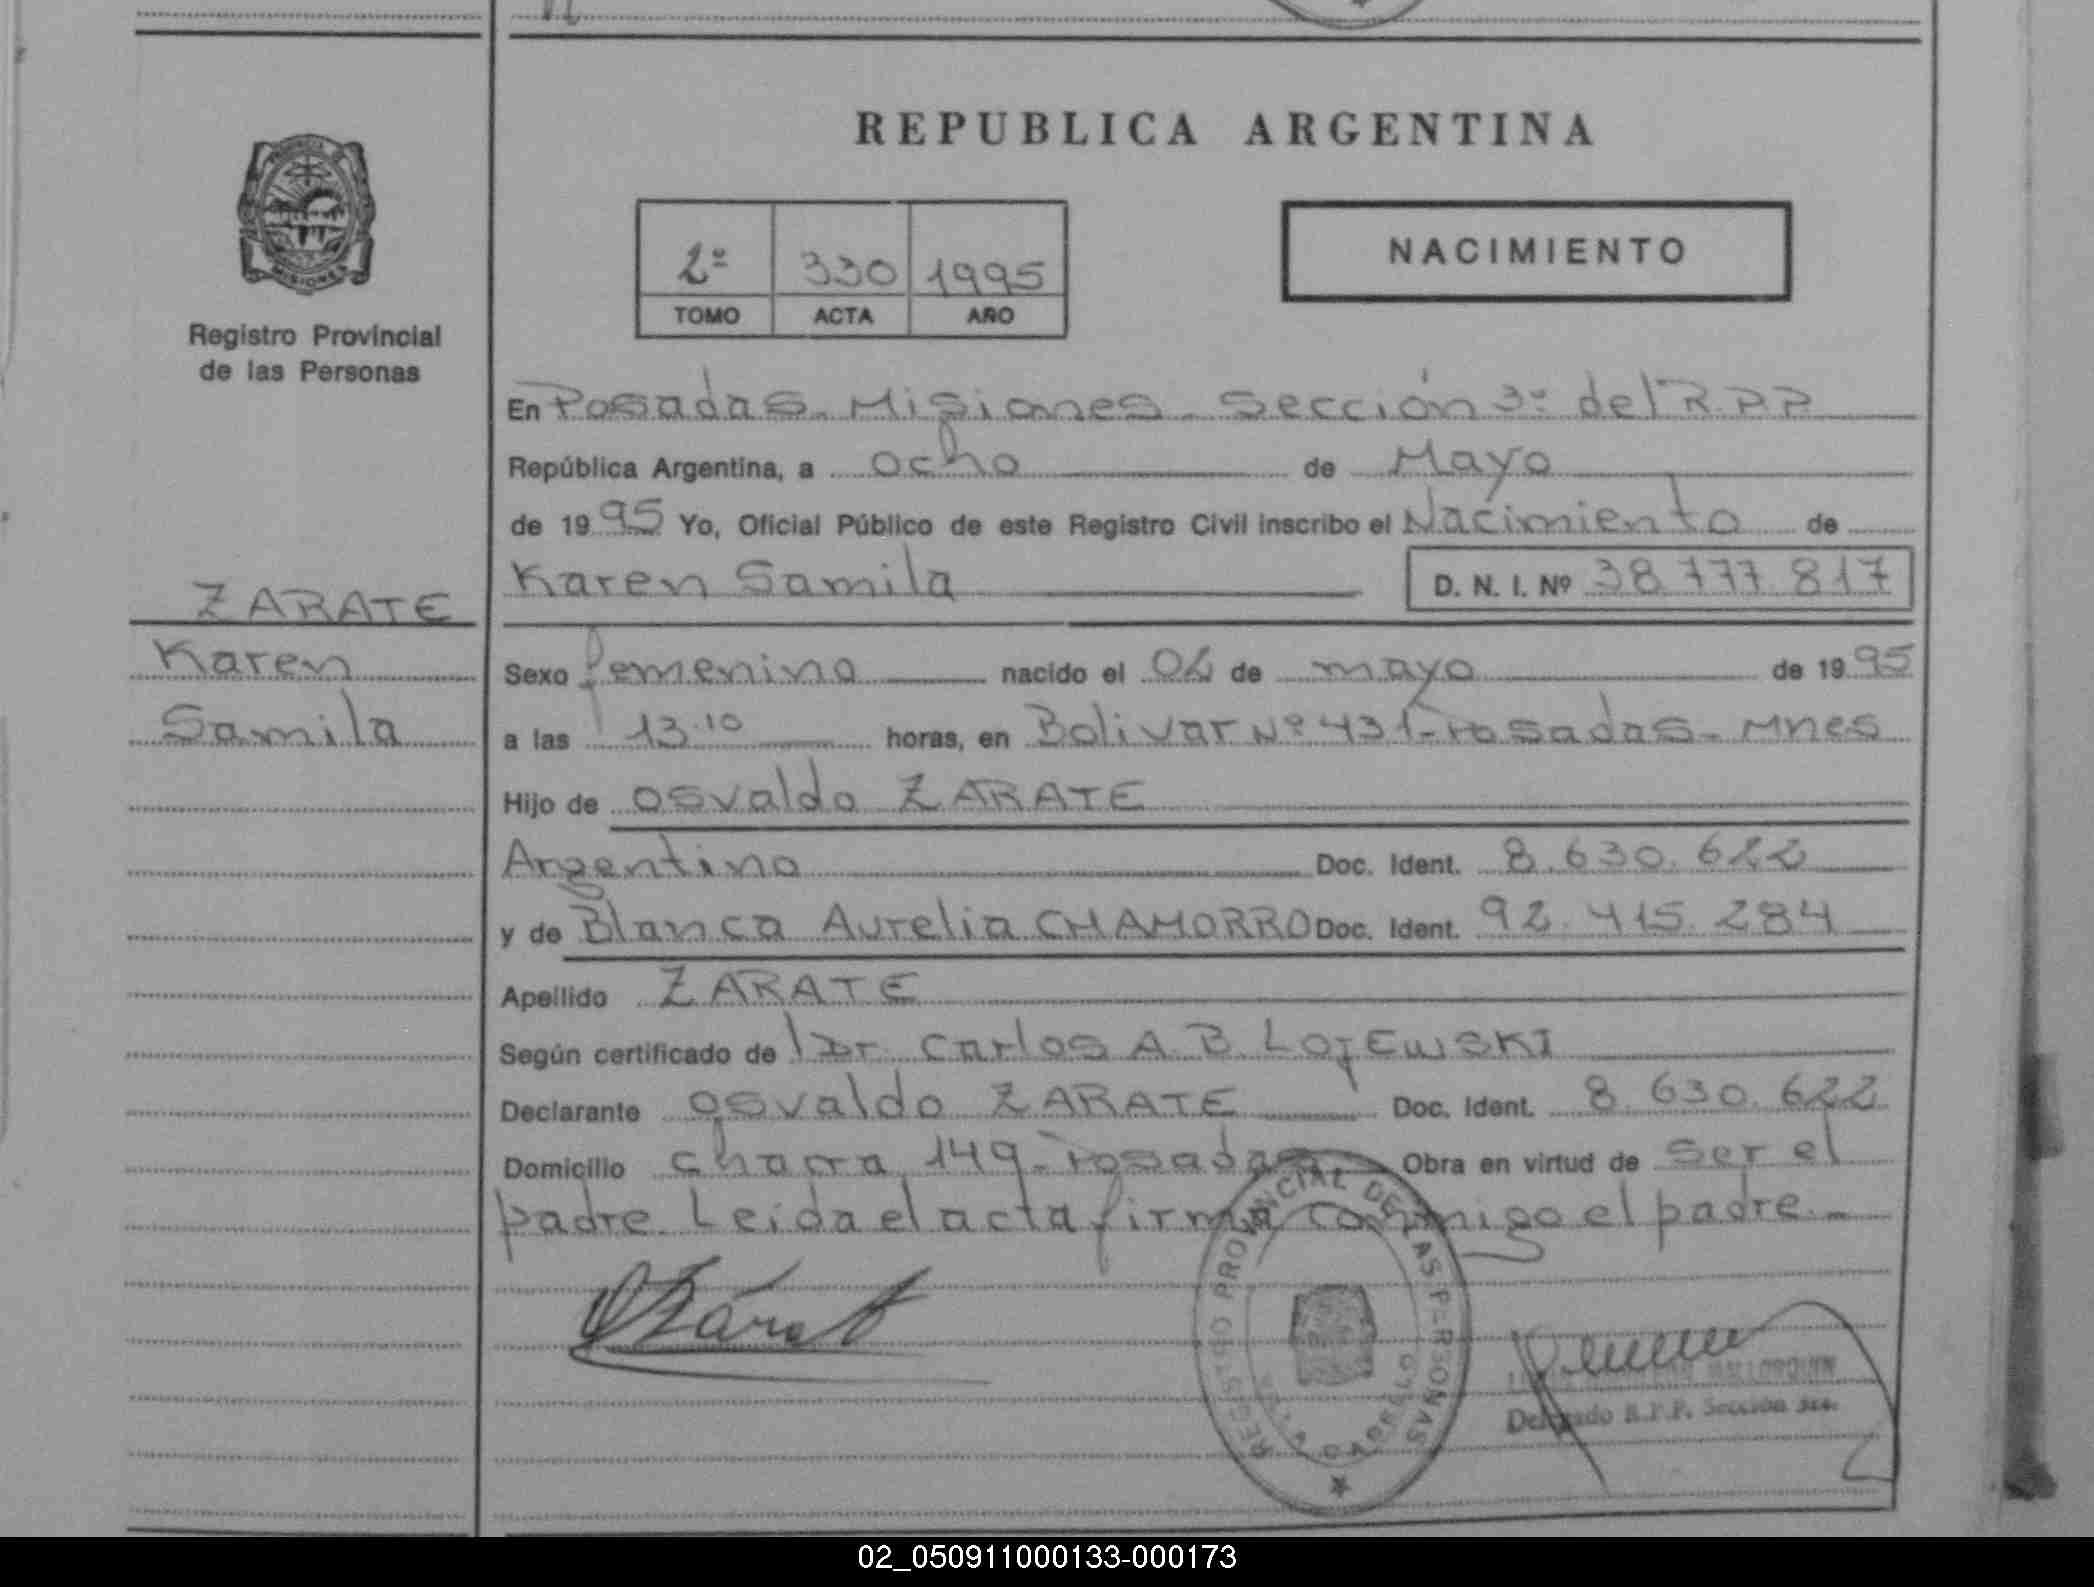 REPUBLICA ARGENTINA
PROVINCIA DE
MISIONES
Registro Provincial
de las Personas
2º 330 1995
TOMO ACTA AÑO
NACIMIENTO
En Posadas - Misiones - Sección 3º del R.P.P
República Argentina, a ocho de Mayo
de 1995 Yo, Oficial Público de este Registro Civil inscribo el Nacimiento de
Karen Samila D. N. I. Nº 38.777.817
ZARATE
Karen
Samila
Sexo femenino nacido el 02 de mayo de 1995
a las 13.10 horas, en Bolivar Nº 431 - Posadas - Mnes
Hijo de Osvaldo ZARATE
Argentino Doc. Ident. 8.630.622
y de Blanca Aurelia CHAMORRO Doc. Ident. 92.415.284
Apellido ZARATE
Según certificado de Dr. Carlos A. B. LOJEWSKI
Declarante Osvaldo ZARATE Doc. Ident. 8.630.622
Domicilio chacra 149 - Posadas Obra en virtud de ser el
padre. Leida el acta firma conmigo el padre. -
OZárate
REGISTRO PROVINCIAL DE LAS PERSONAS
MALLORQUIN
Delegado R.P.P. Sección 3ra.
02_050911000133-000173